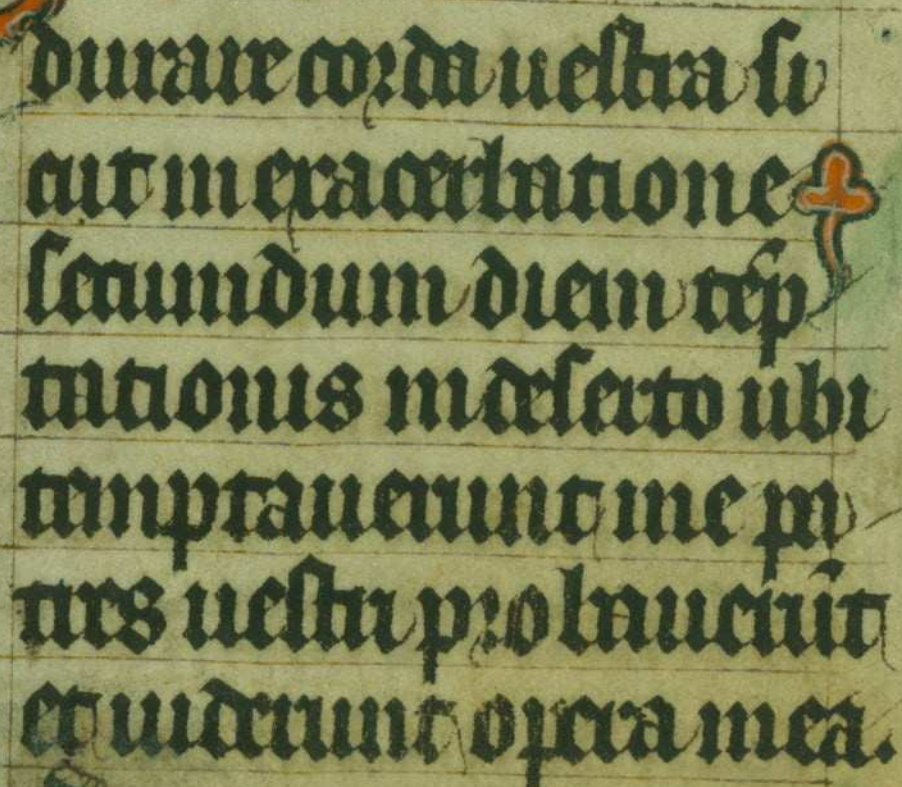 durare corda uestra si
cut in exacerbatione
secundum diem tēp
tationis in deserto ubi
temptauerunt me pa
tres uestri probauerūt
et uiderunt opera mea.